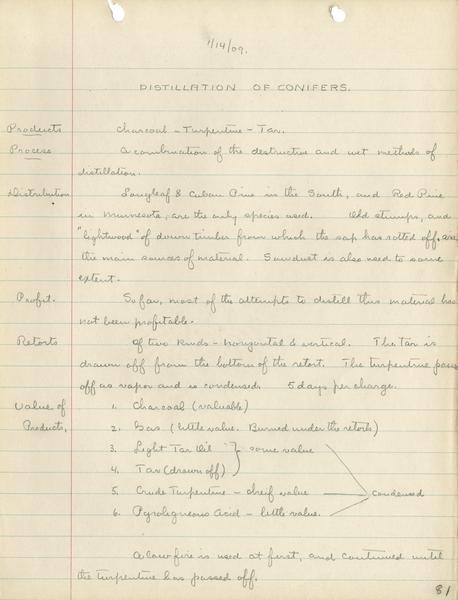 1/14/09.
DISTILLATION OF CONIFERS.
Products Charcoal - Turpentine - Tar.
Process A combination of the destructive and wet methods of
distillation.
Distribution Longleaf & Cuban Pine in the South, and Red Pine
in Minnesota, are the only species used. Old stumps, and
"lightwood" of down timber from which the sap has rotted off, are
the main sources of material. Sawdust is also used to some
extent.
Profit. So far, most of the attempts to distill this material has
not been profitable.
Retorts Of two kinds - horizontal & vertical. The Tar is
drawn off from the bottom of the retort. The turpentine passes
off as vapor and is condensed. 5 days per charge.
Value of 1. Charcoal (valuable)
Products, 2. Gas (little value. Burned under the retorts)
3. Light Tar Oil } some value
4. Tar (drawn off)
5. Crude Turpentine - cheif value condensed
6. Pyroligneous Acid - little value.
A low fire is used at first, and continued until
the turpentine has passed off.
81